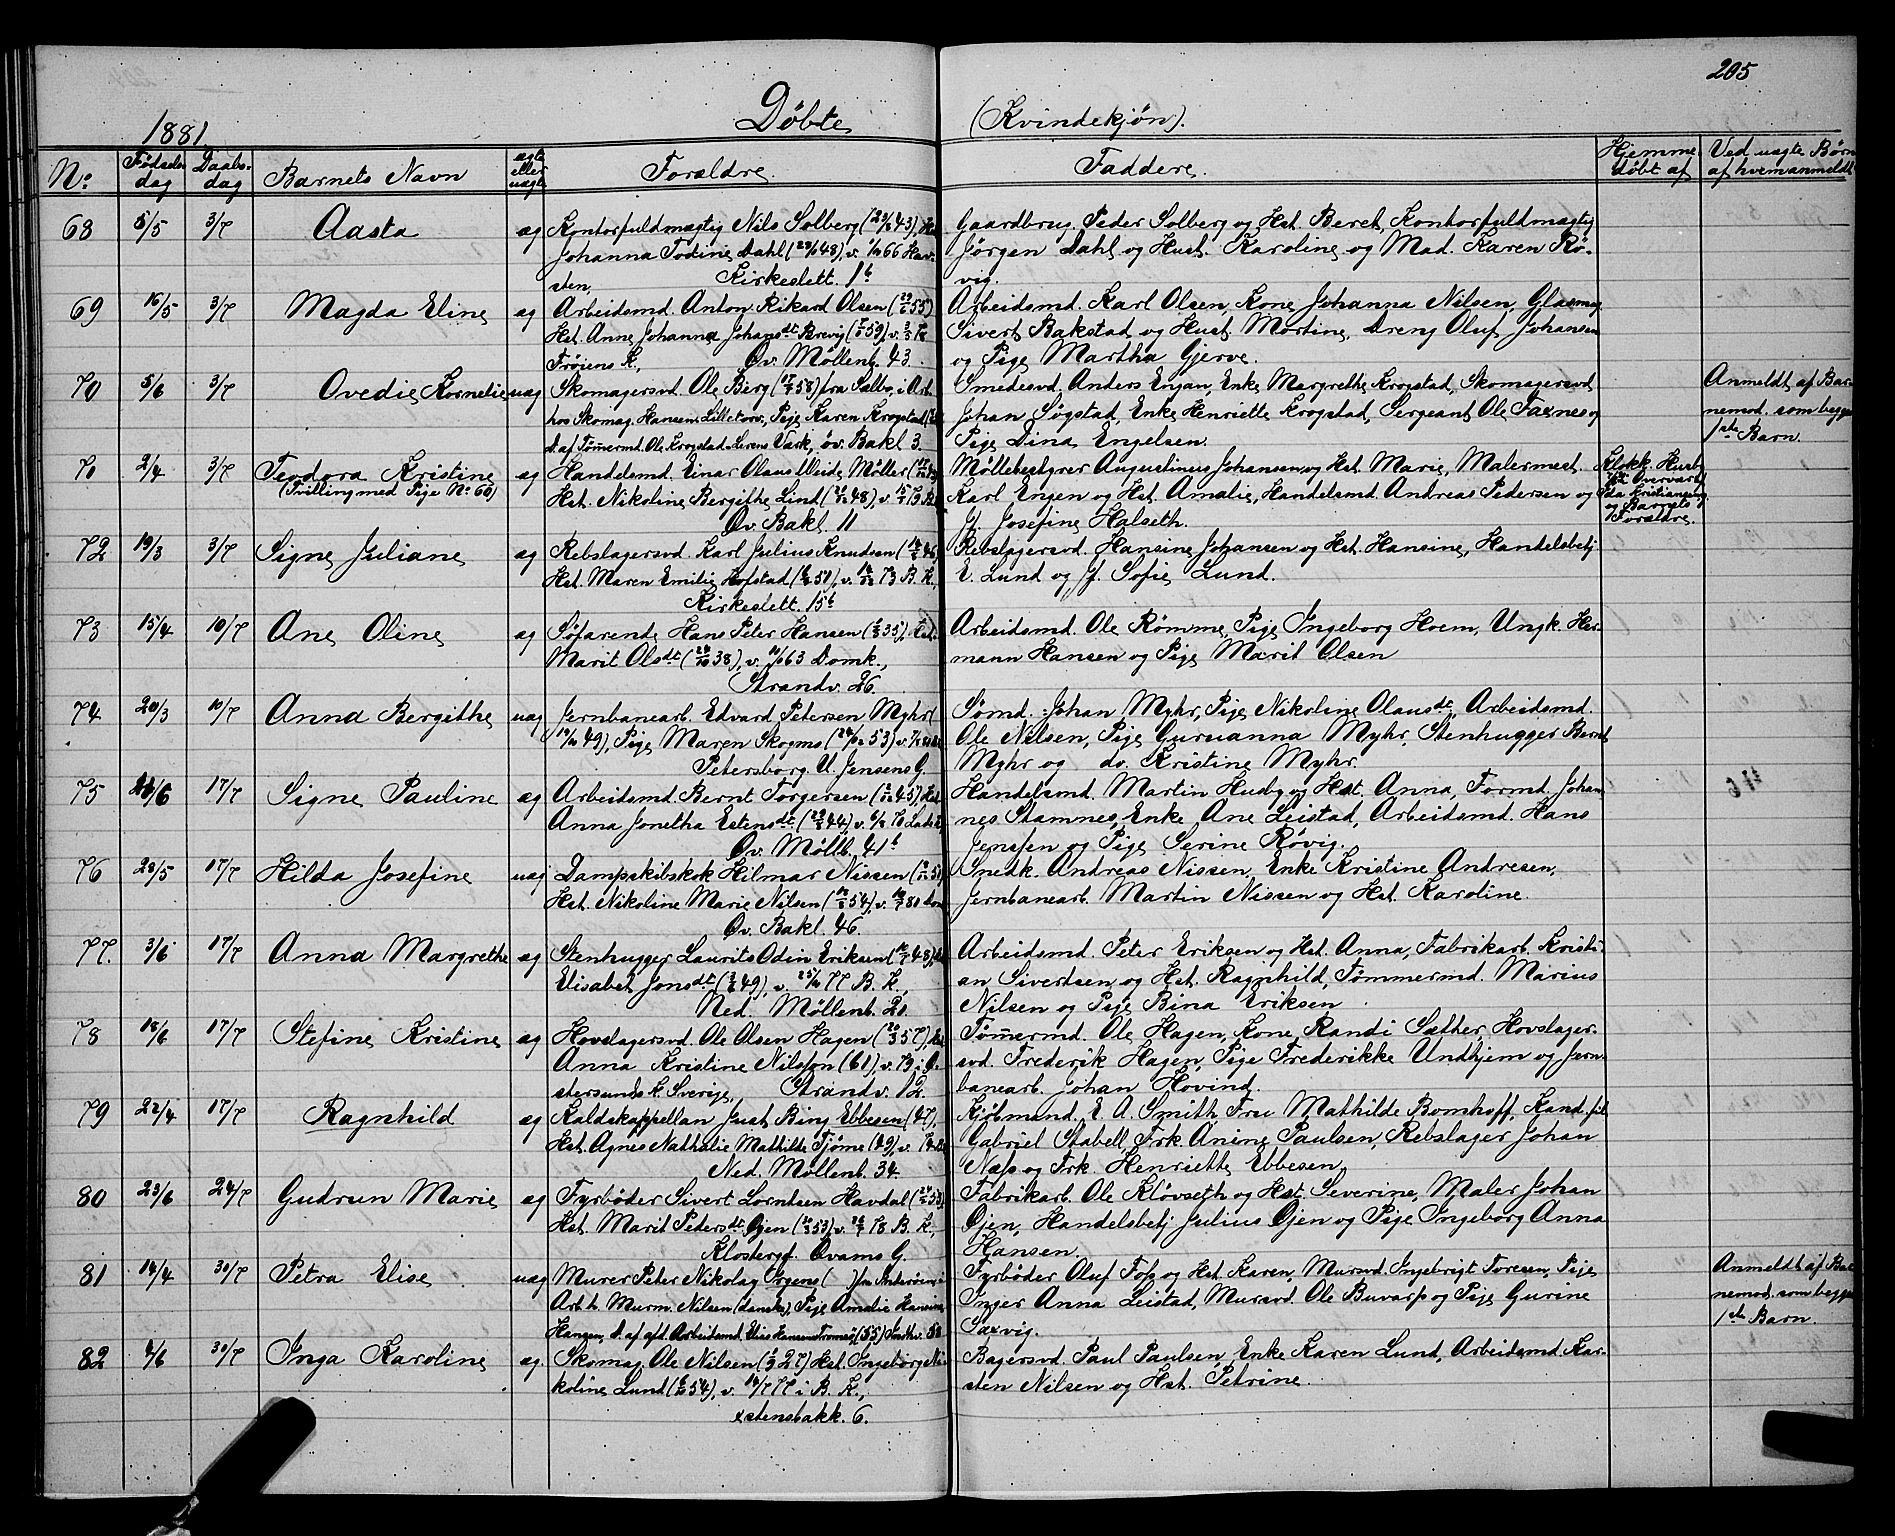 205
Døbte (Kvindekjøn).
1881
No. Fødsels dag Daabs- dag Barnets Navn ægte eller uægte Forældre. Faddere. Hjemme- døbt af Ved uægte Børn af hvem anmeldt
68 5/5 3/7 Aasta æg Kontorfuldmægtig Nils Solberg
Johanna Todine Dahl v. 66
Kirkeslett. 1b
Gaardbrug. Peder Solberg og Hst. Beret, Kontorfuldmægtig
Jørgen Dahl og Hust. Karoline og Mad. Karen Rø-
vig.
69 16/5 3/7 Magda Eline æg Arbeidsmd. Anton Rikard Olsen
Hst. Anne Johanna Johansdt. Brevig
Trøiens K., Øv. Møllenb. 43.
Arbeidsmd. Karl Olsen, Kone Johanna Nilsen, Glasmag
Sivert Bakstad og Hust. Martine, Dreng Oluf Johansen
og Pige Martha Gjerve.
70 5/6 3/7 Ovedie Kornelie uæg Skomagersvd. Ole Berg fra Selbo, i Arb.
hos Skomag. Hansen Lilletorv., Pige Karen Krogstad
D. af Tømermd. Ole Krogstad Lerens Værk, øv. Bakl. 3.
Smedesvd. Anders Enjan, Enke Margrethe Krogstad, Skomagersvd
Johan Søgstad, Enke Henriette Krogstad, Sergeant Ole Faxnes og
Pige Dina Engelsen.
Anmeldt af Bar-
nemod. som begges
1ste Barn
71 2/4 3/7 Teodora Kristine æg Handelsmd. Einar Olaus Weide Møller
(Tvilling med Pige No. 60) Hst. Nikoline Bergithe Lind
Øv. Bakl. 11
Møllebestyrer Augustinus Johansen og Hst. Marie, Malermest.
Karl Engen og Hst. Amalie, Handelsmd. Andreas Pedersen og
Jf. Josefine Halseth.
Klokk. Husby
og Barnets
Forældre.
72 19/3 3/7 Signe Juliane æg Rebslagersvd. Karl Julius Knudsen
Hst. Maren Emilie Hofstad v. 73 B. K.,
Kirkeslett. 15b
Rebslagersvd. Hansine Johansen og Hst. Hansine, Handelsbetj
E. Lund og Jf. Sofie Lund.
73 15/4 10/7 Ane Oline æg Søfarende Hans Peter Hansen
Marit Olsdt. v. 63 Domk.,
Strandv. 26.
Arbeidsmd. Ole Rømme, Pige Ingeborg Hoem, Ungk. Her-
mann Hansen og Pige Marit Olsen
74 20/3 10/7 Anna Bergithe uæg Jernbanearb. Edvard Petersen Myhr
49), Pige Maren Skogmo
Petersborg. U. Jensens G.
Sømd. Johan Myhr, Pige Nikoline Olausdt., Arbeidsmd.
Ole Nilsen, Pige Guruanna Myhr, Stenhugger Bernt
Myhr og do. Kristine Myhr.
75 17/7 Signe Pauline æg Arbeidsmd. Bernt Torgersen
Anna Jonetha Estensdt.
Øv. Møllb. 41b
Handelsmd. Martin Husby og Hst. Anna, Formd. Johan-
nes Stamnes, Enke Ane Leistad, Arbeidsmd. Hans
Jenssen og Pige Serine Røvig.
76 28/5 17/7 Hilda Josefine uæg Dampskibskok Hilmar Nissen
Hst. Nikoline Marie Nilsen
Øv. Bakl. 46.
Snedk. Andreas Nissen, Enke Kristine Andresen,
Jernbanearb. Martin Nissen og Hst. Karoline.
77. 3/6 17/7 Anna Margrethe æg Stenhugger Laurits Odin Eriksen
Elisabet Jonsdt. v. 77 B. K.,
Ned. Møllenb. 20.
Arbeidsmd. Peter Eriksen og Hst. Anna, Fabrikarb. Kristi-
an Sivertsen og Hst. Ragnhild, Tømmermd. Marius
Nilsen og Pige Bina Eriksen
78 18/6 17/7 Stefine Kristine æg Hovslagersvd. Ole Olsen Hagen
Anna Kristine Nilsson (61), v. 79 i Ø-
stersunds K. Sverige, Strandv. 12.
Tømermd. Ole Hagen, Kone Randi Sæther, Hovslager-
svd. Frederik Hagen, Pige Frederikke Undhjem og Jern-
banearb. Johan Hovind.
79 22/4 17/7 Ragnhild æg Kaldskappellan Just Bing Ebbesen (47),
Hst. Agnes Nathalie Mathilde Tjøme (49), v. 74
Ned. Møllenb. 34.
Kjøbmand E. A. Smith, Fru Mathilde Bomhoff, Kand. fil
Gabriel Stabell, Frk. Anine Paulsen, Rebslager Johan
Næss og Frk. Henriette Ebbesen
80 23/6 24/7 Gudrun Marie æg Fyrbøder Sivert Lorntsen Havdal
Hst. Marit Pedersdt. Øjen v. 78 B. K.,
Klostergd. Qvams G.
Fabrikarb. Ole Kløvseth og Hst. Severine, Maler Johan
Øjen, Handelsbetj Julius Øjen og Pige Ingeborg Anna
Hansen.
81 14/4 30/7 Petra Elise uæg Murer Peter Nikolay Ørgens ( ) fra
Arb. h. Murm. Nilsen (dansk), Pige Amalie Hansine
Hansen, D. af afd. Arbeidsmd. Elias Hansen Tromsø, (55)
Fyrbøder Oluf Foss og Hst. Karen, Mursvd. Ingebrigt Toresen, Pige
Inger Anna Leistad, Mursvd. Ole Buvarp og Pige Gurine
Saxvig.
Anmeldt af Bar-
nemod. som begges
1ste Barn
82 4/6 30/7 Inga Karoline æg. Skomag. Ole Nilsen Hst. Ingeborg Ni-
koline Lund v. 77 i B. K.,
stensbakk. 6.
Bagersvd. Paul Paulsen, Enke Karen Lund, Arbeidsmd. Kar-
sten Nilsen og Hst. Petrine.